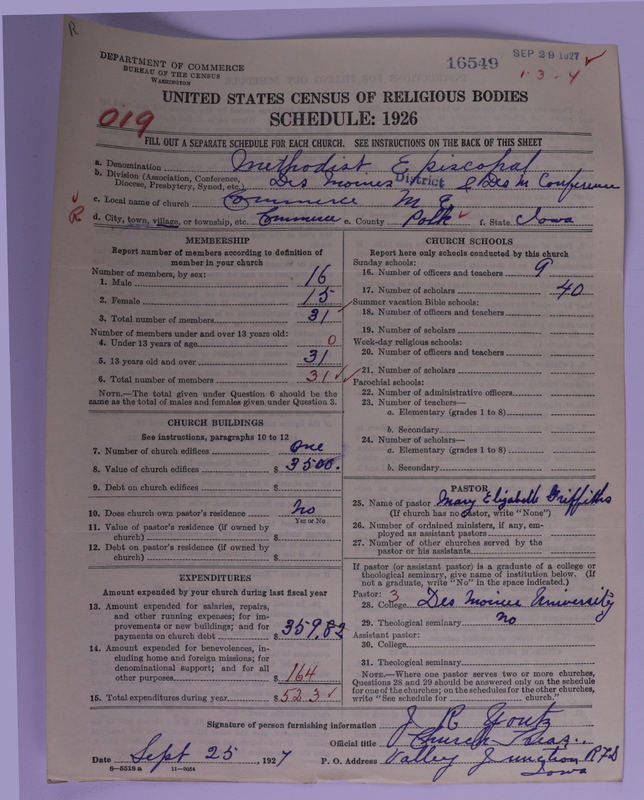 R
DEPARTMENT OF COMMERCE
BUREAU OF THE CENSUS
WASHINGTON
16549
SEP 29 1927
1-3-4
UNITED STATES CENSUS OF RELIGIOUS BODIES
SCHEDULE: 1926
019
FILL OUT A SEPARATE SCHEDULE FOR EACH CHURCH. SEE INSTRUCTIONS ON THE BACK OF THIS SHEET
a. Denomination Methodist Episcopal
b. Division (Association, Conference, Diocese, Presbytery, Synod, etc.) Des Moines District & Des M Conference
c. Local name of church Commerce M E
R d. City, town, village, or township, etc. Commerce e. County Polk f. State Iowa
MEMBERSHIP
Report number of members according to definition of member in your church
Number of members, by sex:
1. Male 16
2. Female 15
3. Total number of members 31
Number of members under and over 13 years old:
4. Under 13 years of age 0
5. 13 years old and over 31
6. Total number of members 31
NOTE.—The total given under Question 6 should be the same as the total of males and females given under Question 3.
CHURCH BUILDINGS
See instructions, paragraphs 10 to 12
7. Number of church edifices one
8. Value of church edifices $ 3500.
9. Debt on church edifices $
10. Does church own pastor's residence No
Yes or No
11. Value of pastor's residence (if owned by church) $
12. Debt on pastor's residence (if owned by church) $
EXPENDITURES
Amount expended by your church during last fiscal year
13. Amount expended for salaries, repairs, and other running expenses; for improvements or new buildings; and for payments on church debt $ 359.82
14. Amount expended for benevolences, including home and foreign missions; for denominational support; and for all other purposes $ 164
15. Total expenditures during year $ 523
CHURCH SCHOOLS
Report here only schools conducted by this church
Sunday schools:
16. Number of officers and teachers 9
17. Number of scholars 40
Summer vacation Bible schools:
18. Number of officers and teachers
19. Number of scholars
Week-day religious schools:
20. Number of officers and teachers
21. Number of scholars
Parochial schools:
22. Number of administrative officers
23. Number of teachers—
a. Elementary (grades 1 to 8)
b. Secondary
24. Number of scholars—
a. Elementary (grades 1 to 8)
b. Secondary
PASTOR
25. Name of pastor Mary Elizabeth Griffiths
(If church has no pastor, write "None")
26. Number of ordained ministers, if any, employed as assistant pastors
27. Number of other churches served by the pastor or his assistants
If pastor (or assistant pastor) is a graduate of a college or theological seminary, give name of institution below. (If not a graduate, write "No" in the space indicated.)
Pastor: 3
28. College Des Moines University
29. Theological seminary no
Assistant pastor:
30. College
31. Theological seminary
NOTE.—Where one pastor serves two or more churches, Questions 28 and 29 should be answered only on the schedule for one of the churches; on the schedules for the other churches, write "See schedule for church."
Signature of person furnishing information J R
Official title Church Treas.
Date Sept 25, 1927 P. O. Address Valley Junction RFD
Iowa
8—5518 a 11—9024